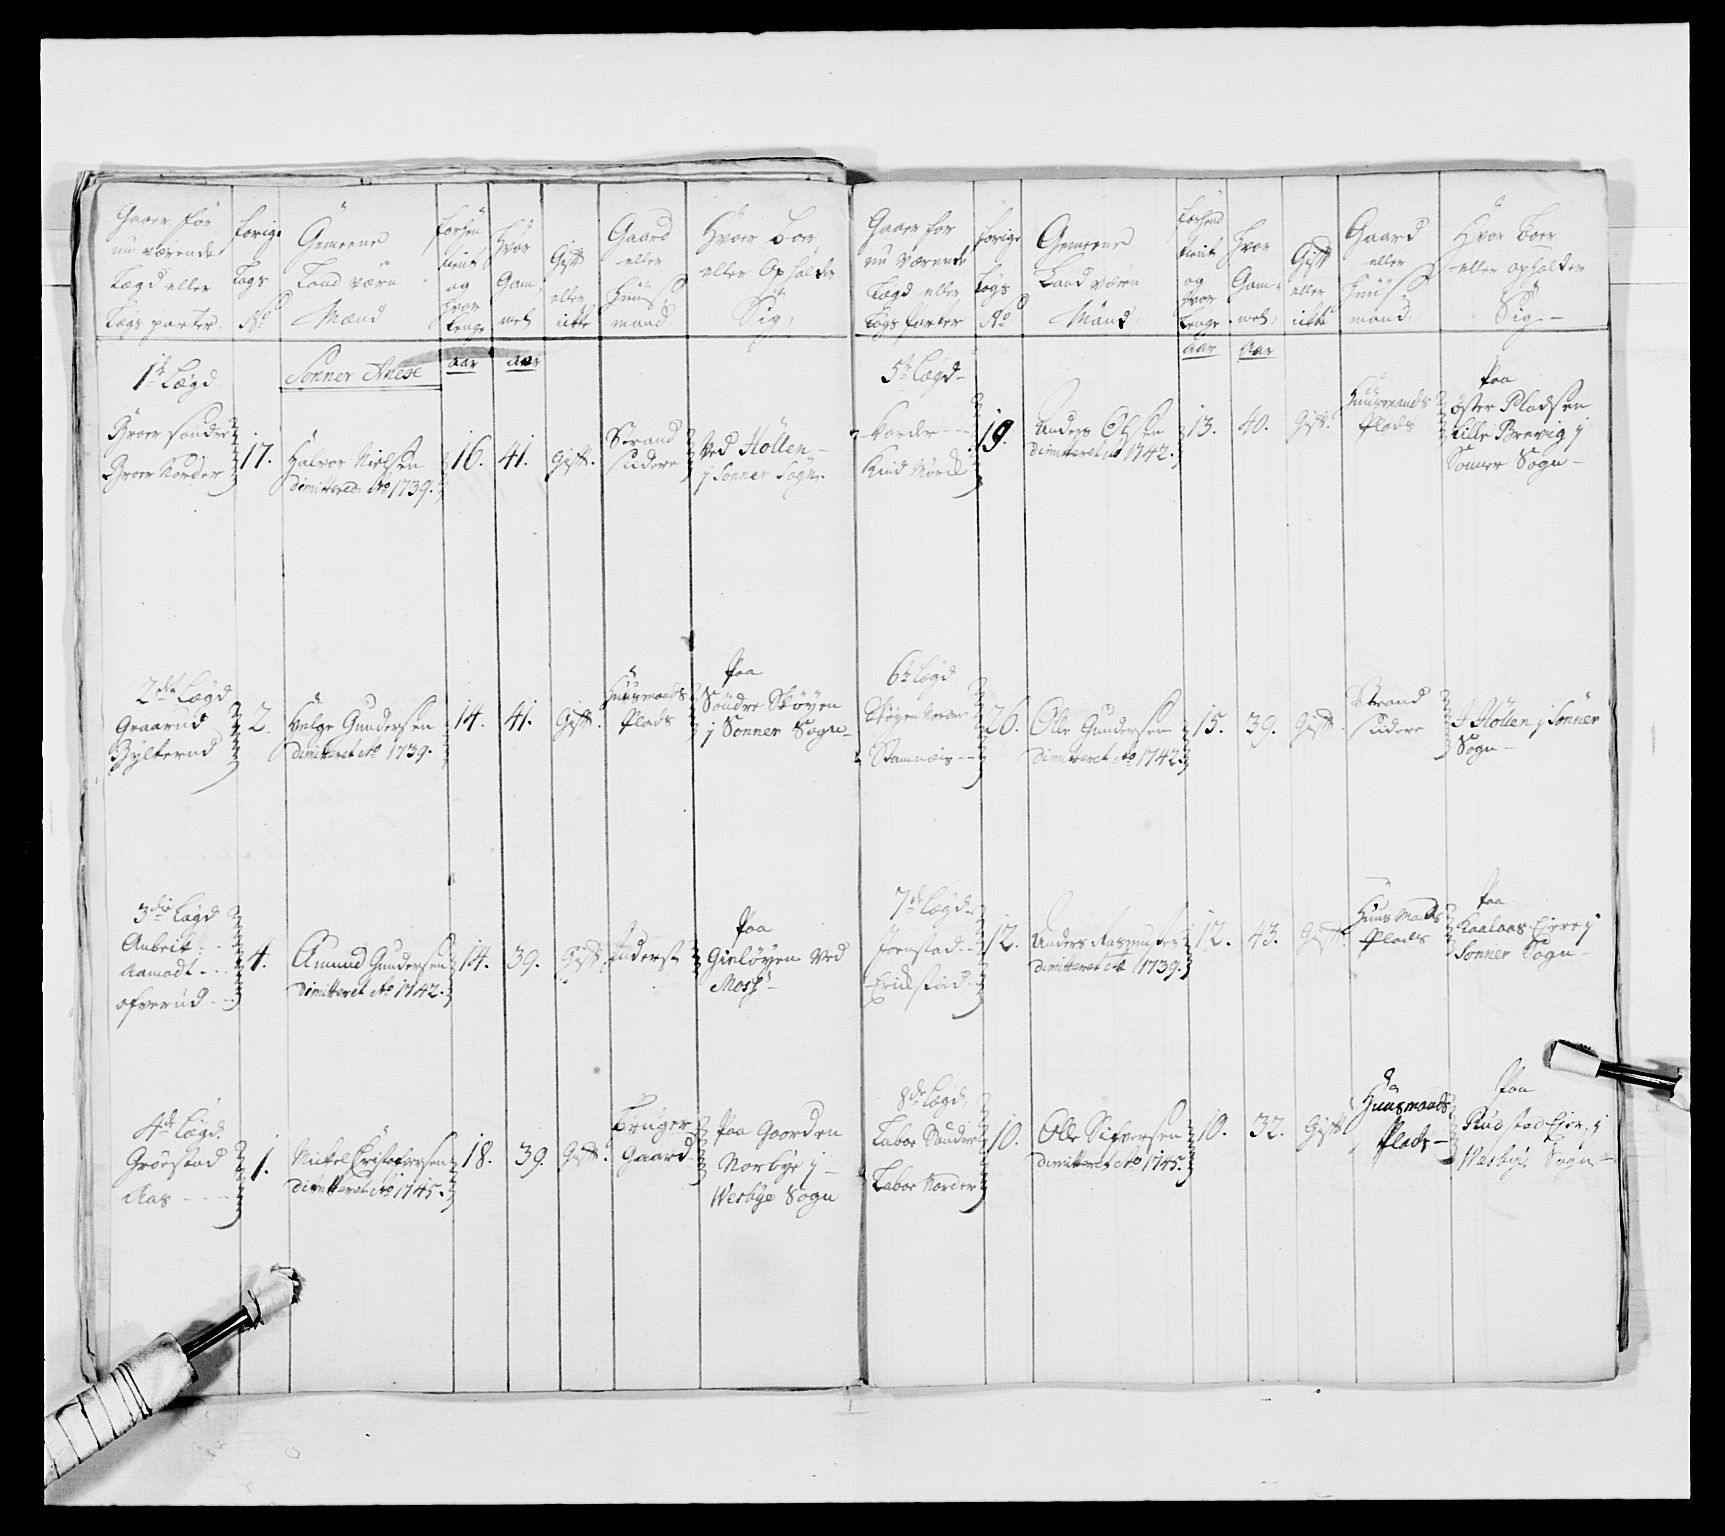 Gaaer for
nu værende
Lægd eller
Lægs parter.
forige
Lægs
No
Gemeene
Land værn
Mænd
forhen
tient
og
hvor
Lenge
Hvor
Gam-
mel
Gift
eller
ikke
Gaard
eller
Huus
mand
Hvor boer
eller Opholder
Sig,
1te Lægd
Sonner Anexe
aar
aar
Broer søndre
Broer Norder
17.
Halvor Nielsen
dimittered: Ao 1739.
16.
41.
Gift.
Strand
sidere
Ved Hollen
j Sonner Sogn.
2den Lægd
Graarud
Bylterud
2.
Helge Gundersen
Dimitteret Ao 1739.
14.
41.
Gift.
Huusmands
Plads
Paa
Søndre Skøyen
j Sonner Sogn
3die Lægd
Aamodt
ofverud
4.
Amund Gundersen
Dimitteret Ao 1742.
14.
39.
Gift.
Inderst
Paa
Gieløyen Ved
Moss
4de Lægd.
Grøestad
Aas
1.
Mickel Cristofersen
Dimitteret Ao 1745.
18.
39.
Gift.
Bruger
Gaard
Paa Gaarden
Norbye j
Wesbye Sogn
Gaaer for
nu værende
Lægd eller
Lægs parter
forige
Lægs
No
Gemeene
Land værn
Mænd.
forhend
tient
og
hvor
Lenge
aar
Hvor
Gam-
mel,
aar
Gift
eller
ikke
Gaard
eller
Huus
mand.
Hvor boer
eller opholder
Sig
5te Lægd
Korder
19.
Anders Olsen
Dimitteret Ao 1742.
13.
40.
Gift.
Huusmands
Plads
Paa
øster Pladsen
Lille Brevig j
Sonner Sogn
6te Lægd
Skøyen Nordre
Stamnæis
26.
Olle Gundersen
Dimitteret Ao 1742.
15.
39.
Gift.
Strand
sidere
I Hollen j Sonner
Sogn
7de Lægd
Joenstad
Erickstad
12.
Anders Rasmussen
Dimitteret Ao 1739.
12.
43.
Gift.
Huus Mands
Plads
Paa
Kaalaas Ejere j
Sonner Sogn
8de Lægd,
Laboe Sønder
Laboe Norder
10.
Olle Sifversen
Dimitteret Ao 1745.
10.
32.
Gift.
Huusmands
Plads
Paa
Rustad Ejer, j
Wesbye Sogn